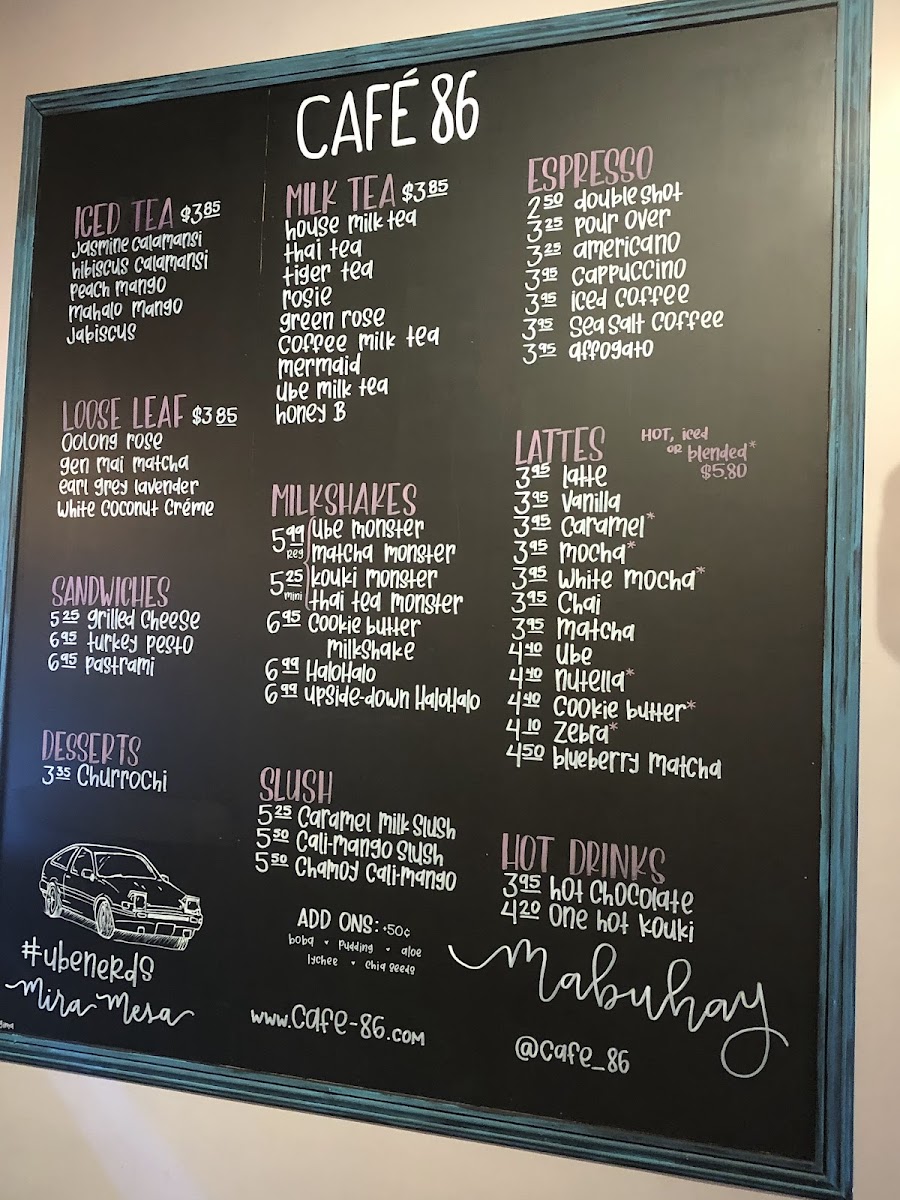 CAFÉ 86
ICED TEA $3.85
Jasmine calamansi
hibiscus calamansi
Peach mango
mahalo mango
Jabiscus
LOOSE LEAF $3.85
Oolong rose
gen mai matcha
earl grey lavender
White Coconut Créme
SANDWICHES
5.25 grilled cheese
6.95 turkey pesto
6.95 pastrami
DESSERTS
3.35 Churrochi
#ubenerds
Mira Mesa
MILK TEA $3.85
house milk tea
thai tea
tiger tea
rosie
green rose
coffee milk tea
mermaid
Ube milk tea
honey B
MILKSHAKES
5.99 Reg
5.25 mini
Ube monster
matcha monster
kouki monster
thai tea monster
6.95 Cookie butter
milkshake
6.99 HaloHalo
6.99 upside-down HaloHalo
SLUSH
5.25 Caramel Milk Slush
5.50 Cali-mango Slush
5.50 Chamoy Cali-mango
ADD ONS: +50¢
boba • Pudding • aloe
lychee • Chia Seeds
www.cafe-86.com
ESPRESSO
2.50 double shot
3.25 Pour over
3.25 americano
3.95 Cappuccino
3.95 iced coffee
3.95 Sea Salt Coffee
3.95 affogato
LATTES
HOT, iced
OR blended*
$5.80
3.95 latte
3.95 Vanilla
3.95 Caramel*
3.95 mocha*
3.95 White mocha*
3.95 Chai
3.95 matcha
4.40 Ube
4.40 Nutella*
4.40 Cookie butter*
4.10 Zebra*
4.50 blueberry matcha
HOT DRINKS
3.95 hot Chocolate
4.20 One hot kouki
Mabuhay
@cafe_86